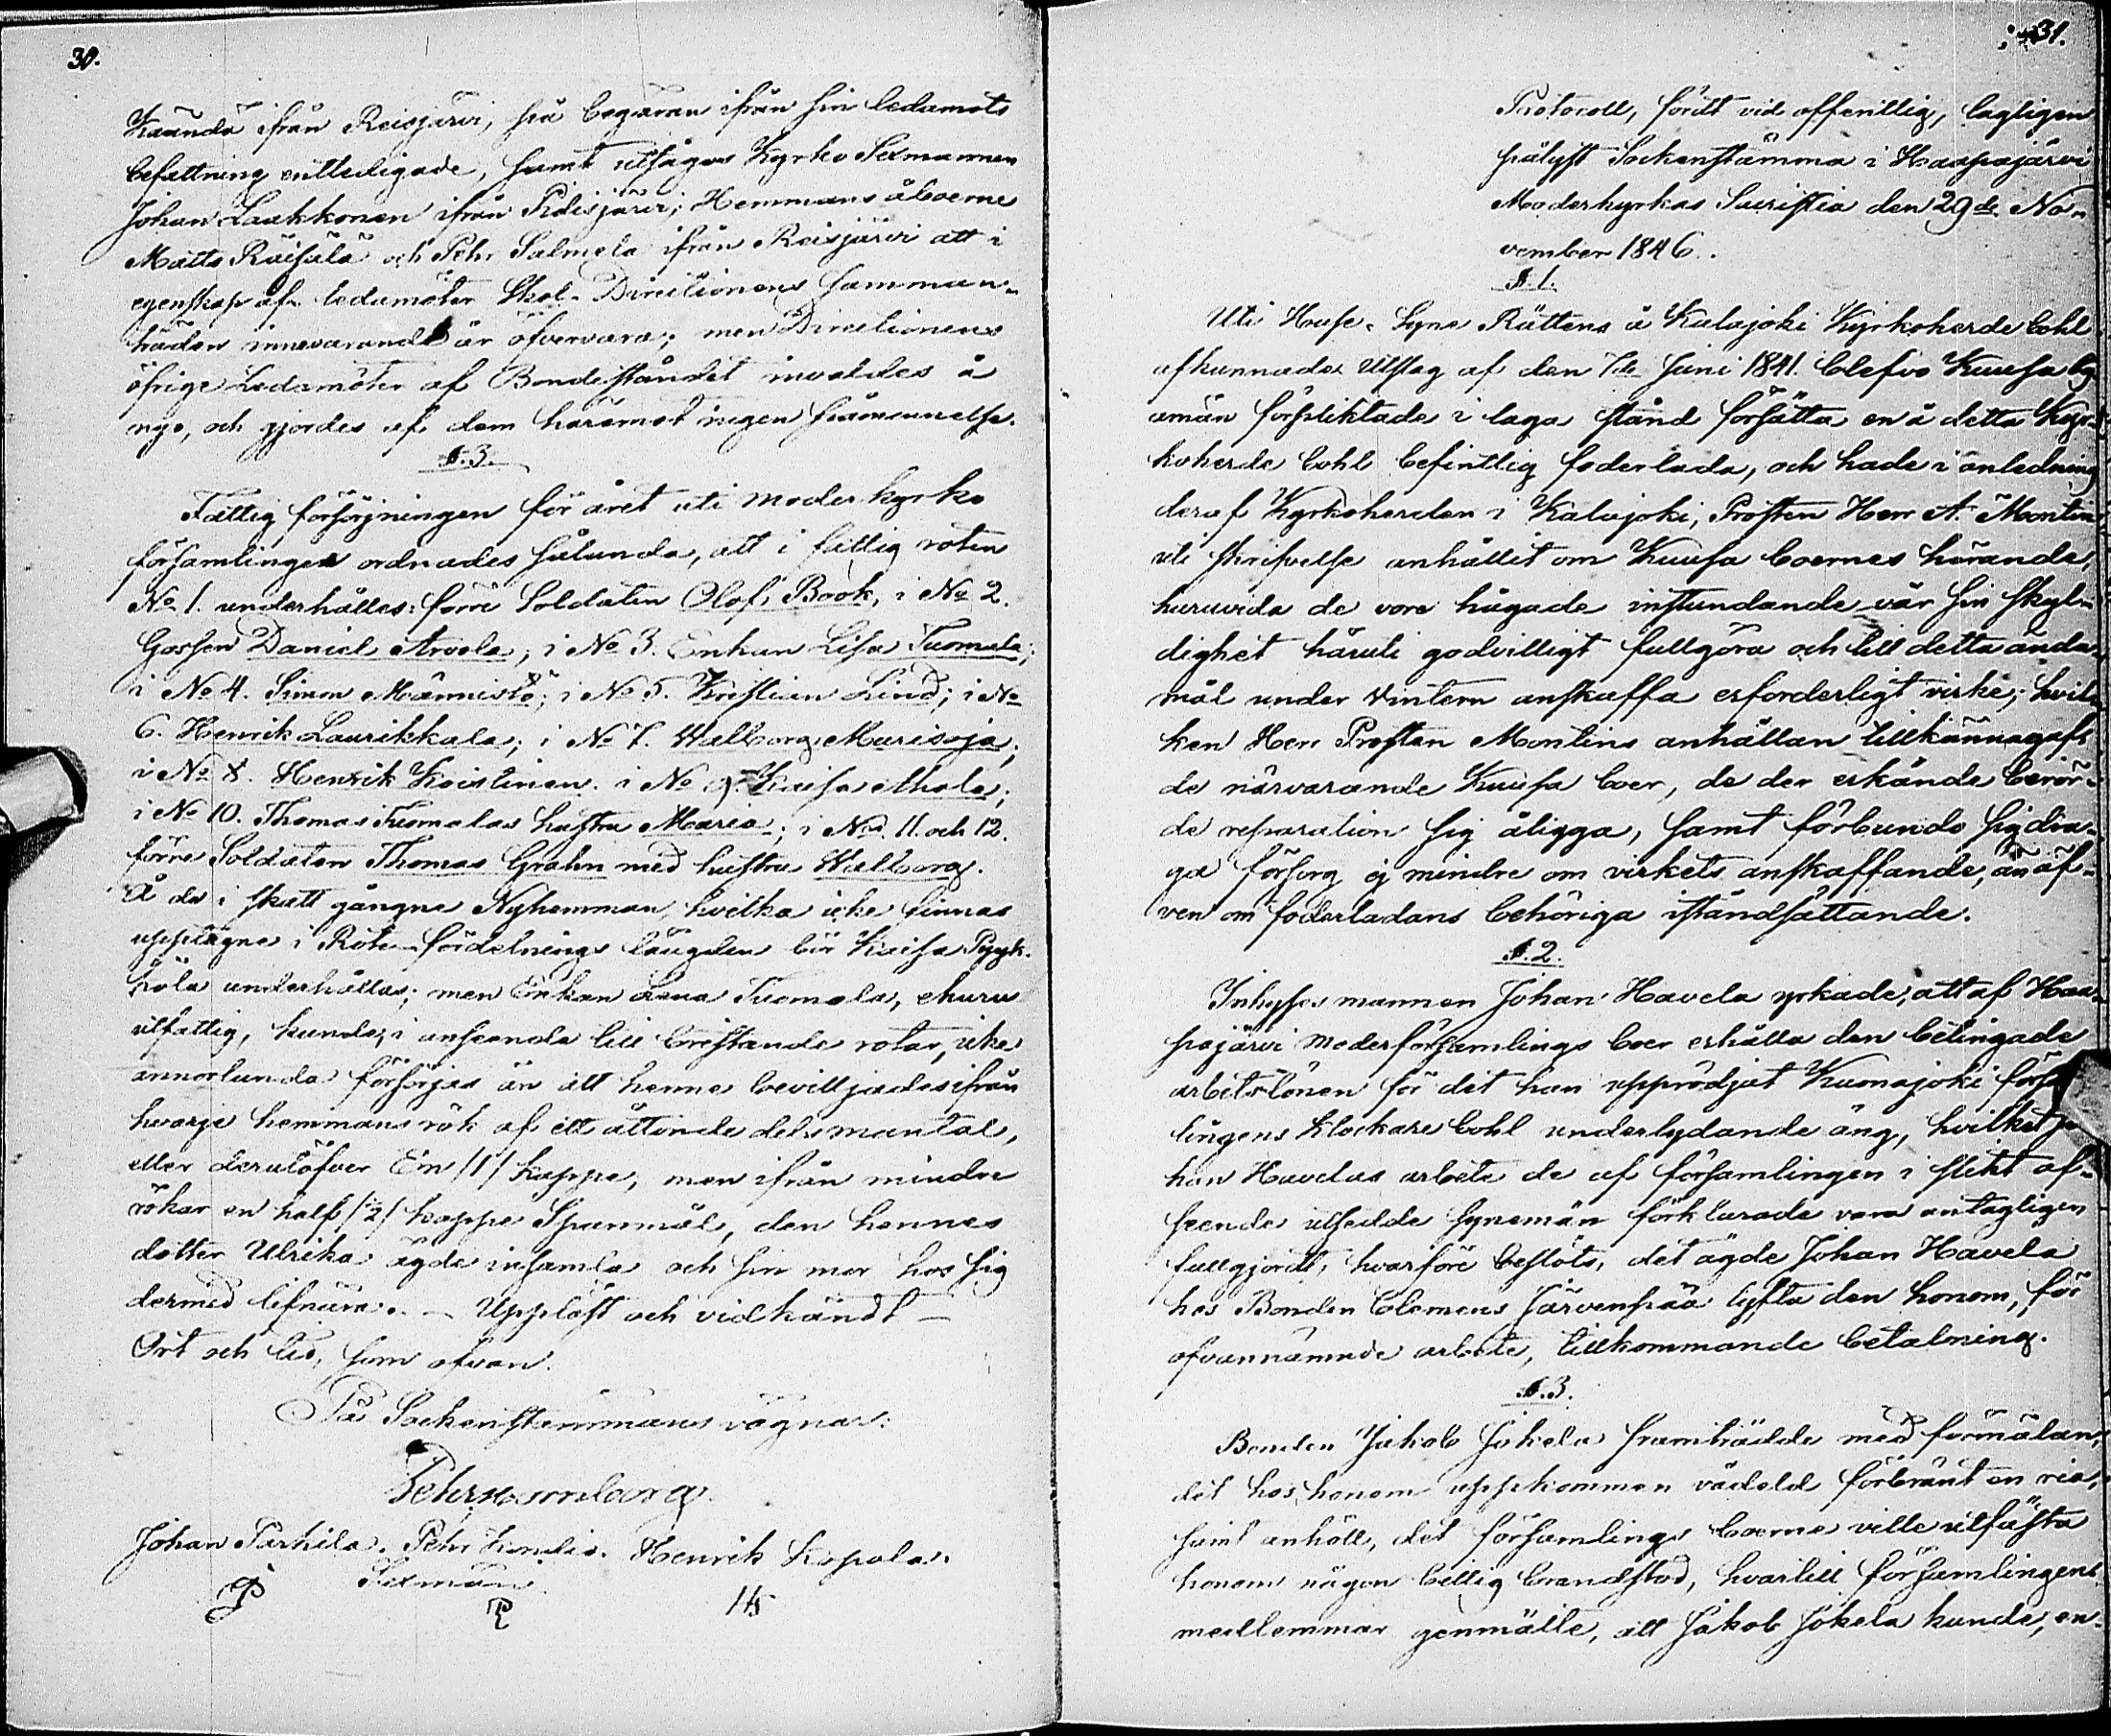 30.
Kaandä ifrån Reisjärvi, på begäran ifrån sin ledamots
befattning entledigade, samt utsågos Kyrko Sexmannen
Johan Laakkonen ifrån Pidisjärvi; Hemmans åboerne
Matts Räisälä och Pehr Salmela ifrån Reisjärvi att i
egenskap af ledamöter Skol-Direktionens samman-
träden innevarande år öfvervara; men Direktionens
öfrige Ledamöter af Bondeståndet invaldes å
nyo, och gjordes af dem häremot ingen
§.3.
Fattig försörjningen för året uti moderkyrko
församlingen ordnades sålunda, att i fattig roten
No 1. underhålles: förre Soldaten Olof Book, i No 2.
Gossen Daniel Arvola; i No 3. Enkan Lisa Tuomala;
i No 4. Simon Männistö; i No 5. Kristian Lind; i No
6. Henrik Laurikkala; i No 7. Walborg Marisoja;
i No 8. Henrik Koistinen. i No 9. Kaisa Ahola;
i No 10. Thomas Tuomalas hustru Maria; i No. 11. och 12.
förre Soldaten Thomas Grahn med hustru Walborg.
Å de i skatt gångne Nyhemman, hvilka icke finnas
upptagne i Rote-fördelnings längden bör Kaisa Pyyk-
kölä underhållas; men Enkan Lena Tuomala, ehuru
utfattig, kunde, i anseende till bristande rotar, icke
annorlunda försörjas än att henne bevilljades ifrån
hvarje hemmans rök af ett åttonde dels mantal,
eller derutöfver En /1/ kappe, men ifrån mindre
rökar en half /½/ kappe Spannmål, den hennes
dotter Ulrika ägde insamla och sin mor hos sig
dermed lifnära. — Uppläst och vidkändt —
Ort och tid, som ofvan.
På Sockenstämmans vägnar:
Johan Parkila. Pehr Henrik Kopala.
Sexmän.
31.
Protocoll, fördt vid offentlig, lagligen
pålyst Sockenstämma i Haapajärvi
Moderkyrkas Sacristia den 29de No-
vember 1846.
§.1.
Uti Huse-Syne Rättens å Kalajoki Kyrkoherde bohl
afkunnades Utslag af den 7de Juni 1841. blefvo Kuusa by
amän förpliktade i laga stånd försätta en å detta Kyr-
koherde bohl befintlig foderlada, och hade i anledning
deraf Kyrkoherden i Kalajoki, Prosten Herr A. Montin
uti skrifvelse anhållit om Kuusa boernes hörande,
huruvida de vore hågade instundande vår sin skyl-
dighet häruti godvilligt fullgöra och till detta ända-
mål under Vintern anskaffa erforderligt virke; hvil-
ken Herr Prosten Montins anhållan tillkännagafs
de närvarande Kuusa boer, de der erkände berör-
de reparation sig åligga, samt förbundo sig dra-
ga försorg ej mindre om virkets anskaffande, än äf-
ven om foderladans behöriga iståndsättande.
§.2.
Inhyses mannen Johan Havela yrkade, att af Haa-
pajärvi moderförsamlings boer erhålla den betingade
arbetslönen för det han upprödjat Kuonajoki försa
lingens Klockare bohl underlydande äng, hvilket Jo
han Havelas arbete de af församlingen i slikt af-
seende utsedde synemän förklarade vara antagligen
fullgjordt, hvarföre beslöts, det ägde Johan Havela
hos Bonden Clemens Järvenpää lyfta den honom, för
ofvannämnde arbete, tillkommande betalning.
§.3.
Bonden Jakob Jokela framträdde med förmälan,
det hos honom uppkommen vådeld förbränt en ria,
samt anhöll, det församlings boerne ville utfästa
honom någon billig brandstod, hvartill församlingens
medlemmar genmälte, att Jakob Jokela kunde, en-